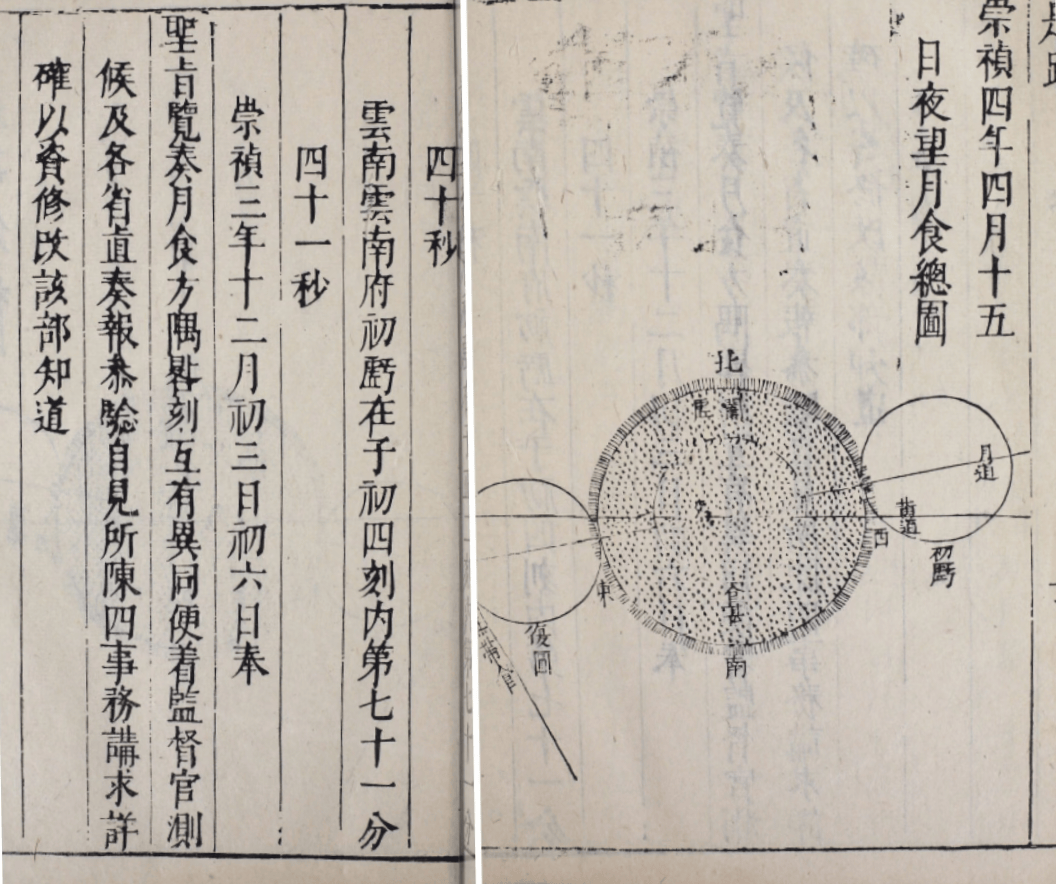 崇禎四年四月十五
日夜望月食總圖
北
月道
黃道
初虧
西
食甚
南
東
復圓
四十秒
雲南雲南府初虧在子初四刻内第七十一分
四十一秒
崇禎三年十二月初三日初六日奉
聖旨覽奏月食方隅晷刻互有異同便着監督官測
候及各省直奏報叅驗自見所陳四事務講求詳
確以資修改該部知道